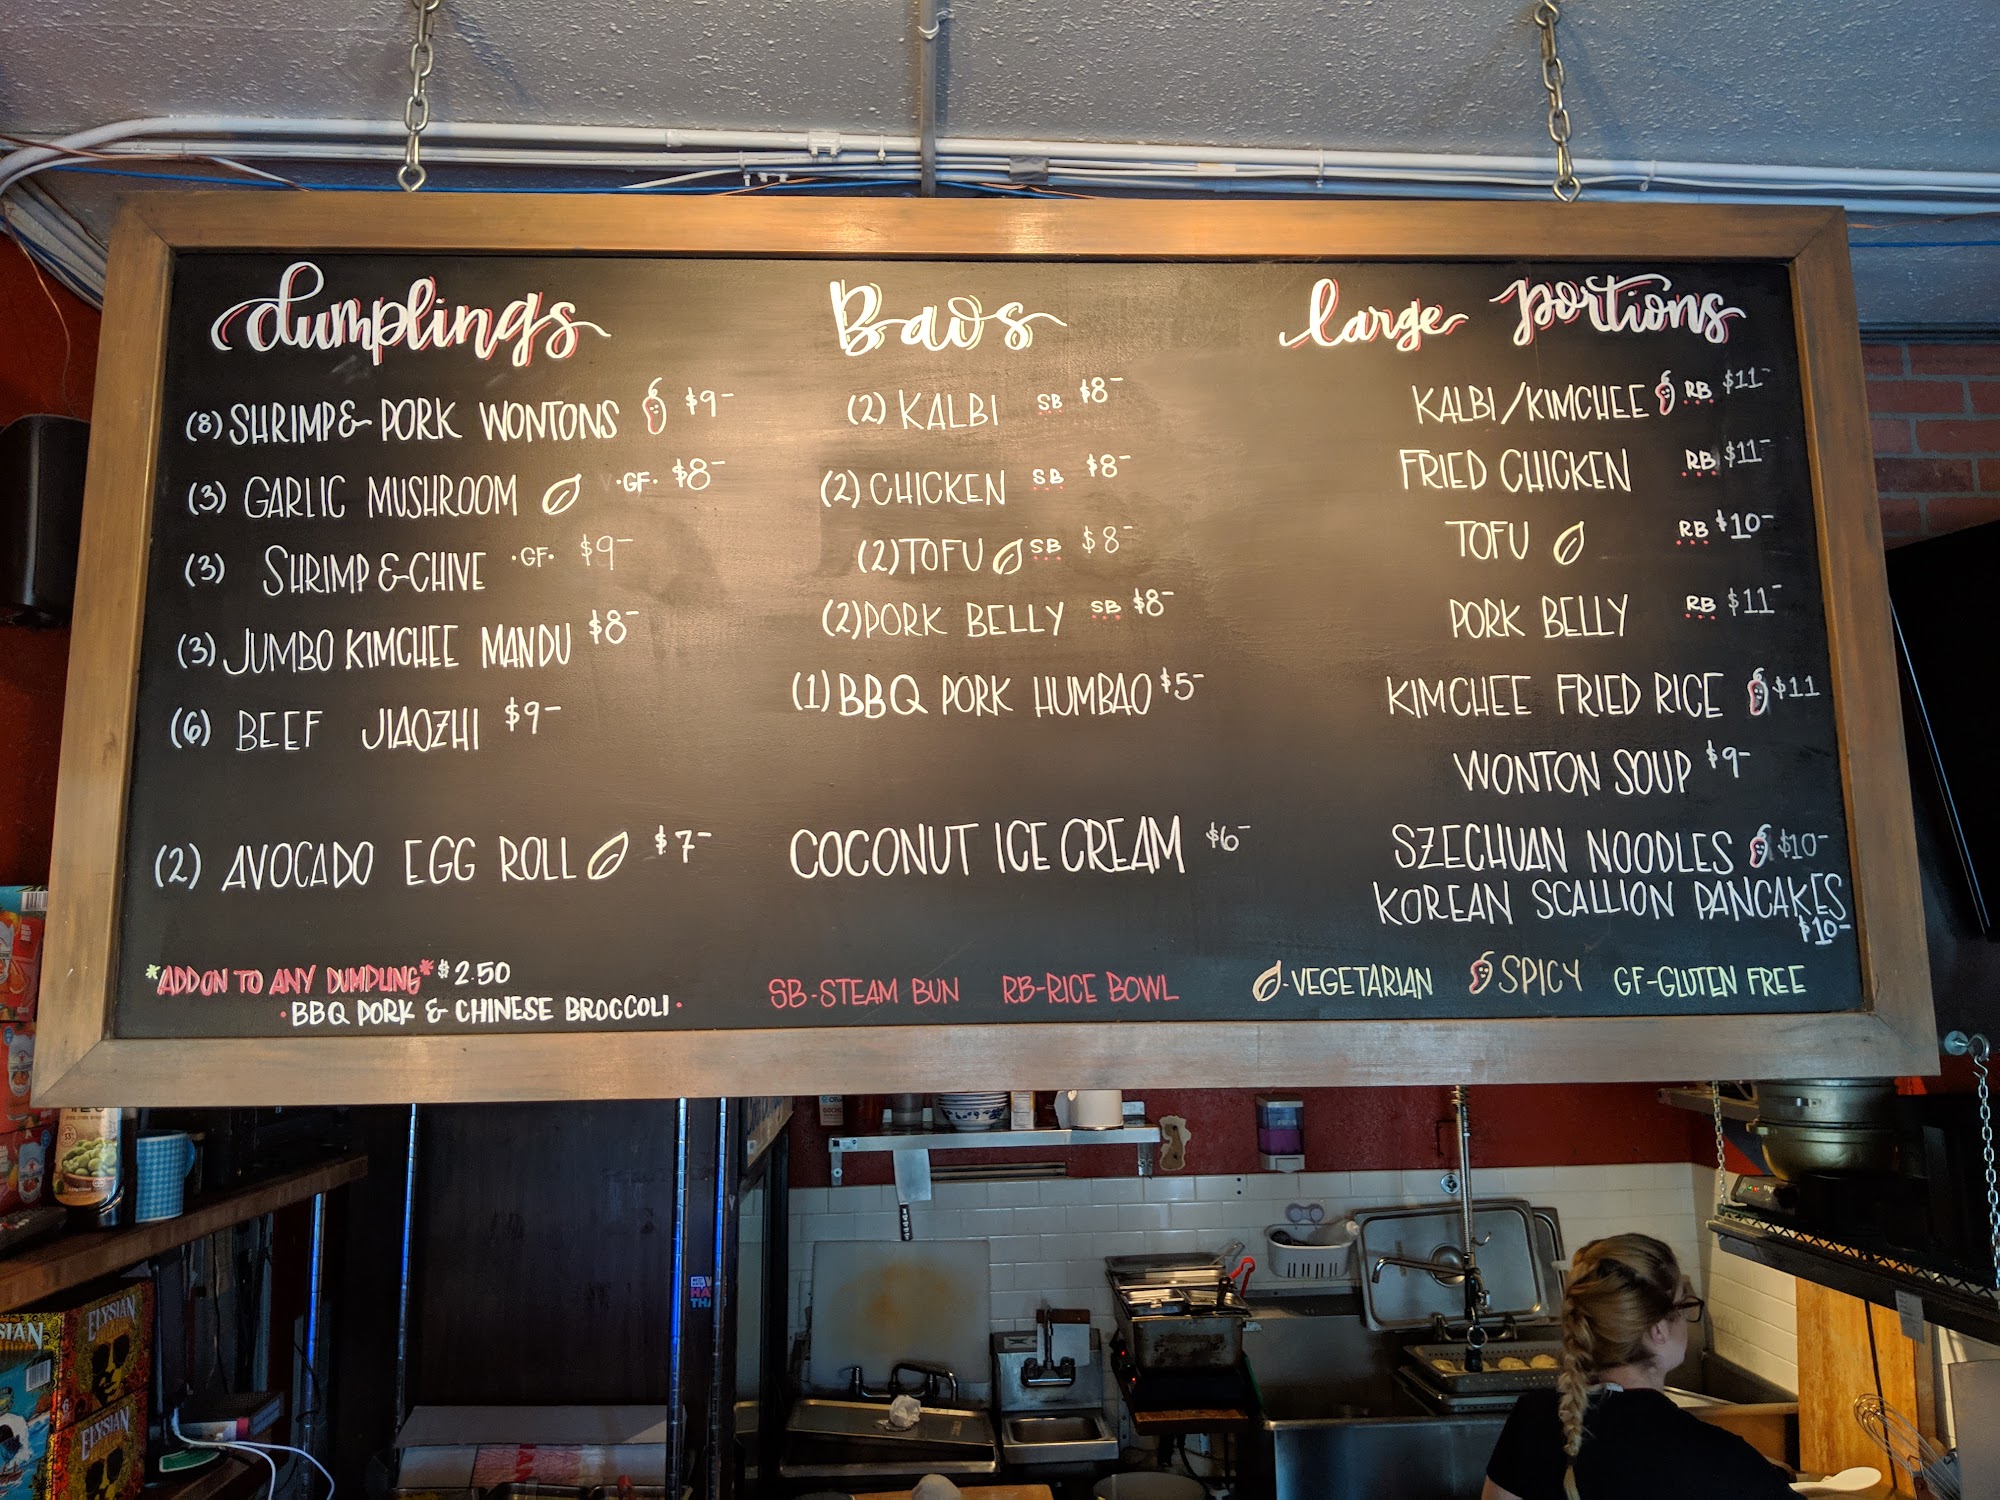 dumplings
(8) SHRIMP & PORK WONTONS $9-
(3) GARLIC MUSHROOM ·GF· $8-
(3) SHRIMP & CHIVE ·GF· $9-
(3) JUMBO KIMCHEE MANDU $8-
(6) BEEF JIAOZHI $9-
(2) AVOCADO EGG ROLL $7-
*ADD ON TO ANY DUMPLING* $2.50
·BBQ PORK & CHINESE BROCCOLI·
Baos
(2) KALBI SB $8-
(2) CHICKEN SB $8-
(2) TOFU SB $8-
(2) PORK BELLY SB $8-
(1) BBQ PORK HUMBAO $5-
COCONUT ICE CREAM $6-
SB-STEAM BUN RB-RICE BOWL
large portions
KALBI/KIMCHEE RB $11-
FRIED CHICKEN RB $11-
TOFU RB $10-
PORK BELLY RB $11-
KIMCHEE FRIED RICE $11
WONTON SOUP $9-
SZECHUAN NOODLES $10-
KOREAN SCALLION PANCAKES
$10-
-VEGETARIAN SPICY GF-GLUTEN FREE
ELYSIAN
ELYSIAN